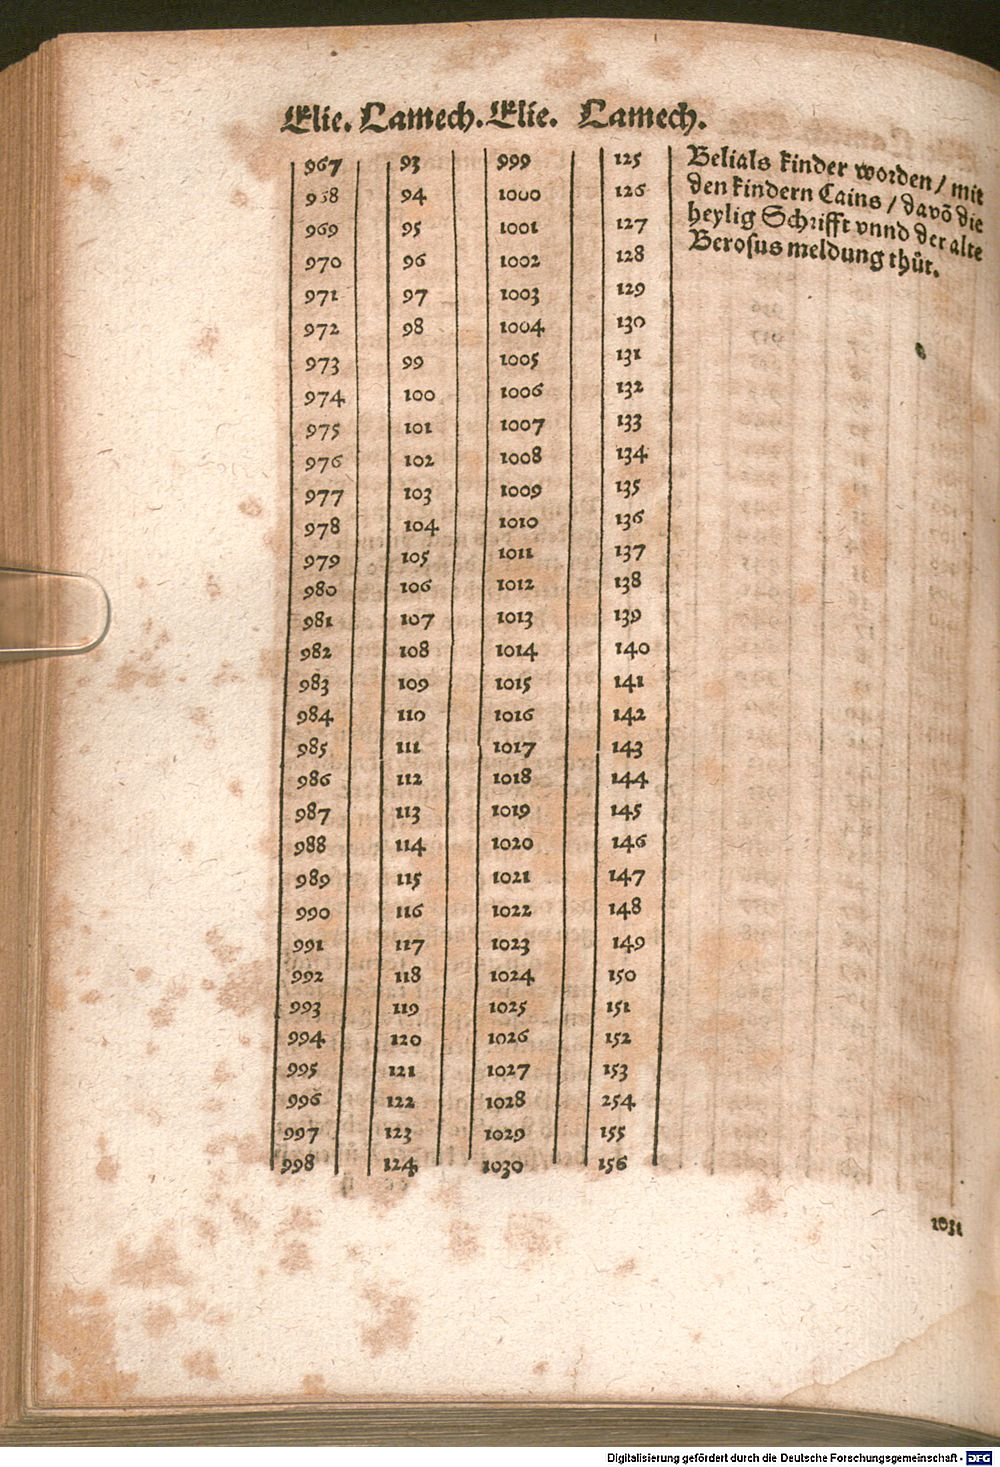 Elie. Lamech. Elie. Lamech.
967 93 999 125
968 94 1000 126
969 95 1001 127
970 96 1002 128
971 97 1003 129
972 98 1004 130
973 99 1005 131
974 100 1006 132
975 101 1007 133
976 102 1008 134
977 103 1009 135
978 104 1010 136
979 105 1011 137
980 106 1012 138
981 107 1013 139
982 108 1014 140
983 109 1015 141
984 110 1016 142
985 111 1017 143
986 112 1018 144
987 113 1019 145
988 114 1020 146
989 115 1021 147
990 116 1022 148
991 117 1023 149
992 118 1024 150
993 119 1025 151
994 120 1026 152
995 121 1027 153
996 122 1028 254
997 123 1029 155
998 124 1030 156
Belials kinder worden / mit
den kindern Cains / davõ die
heylig Schrifft vnnd der alte
Berosus meldung thůt.
1031
Digitalisierung gefördert durch die Deutsche Forschungsgemeinschaft - DFG